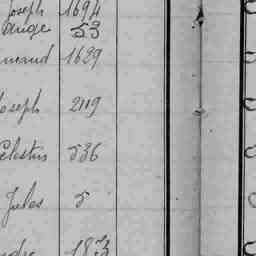 Joseph 1694
Ange 53
1689
Joseph 2119
Celestin 536
Jules 5
1873